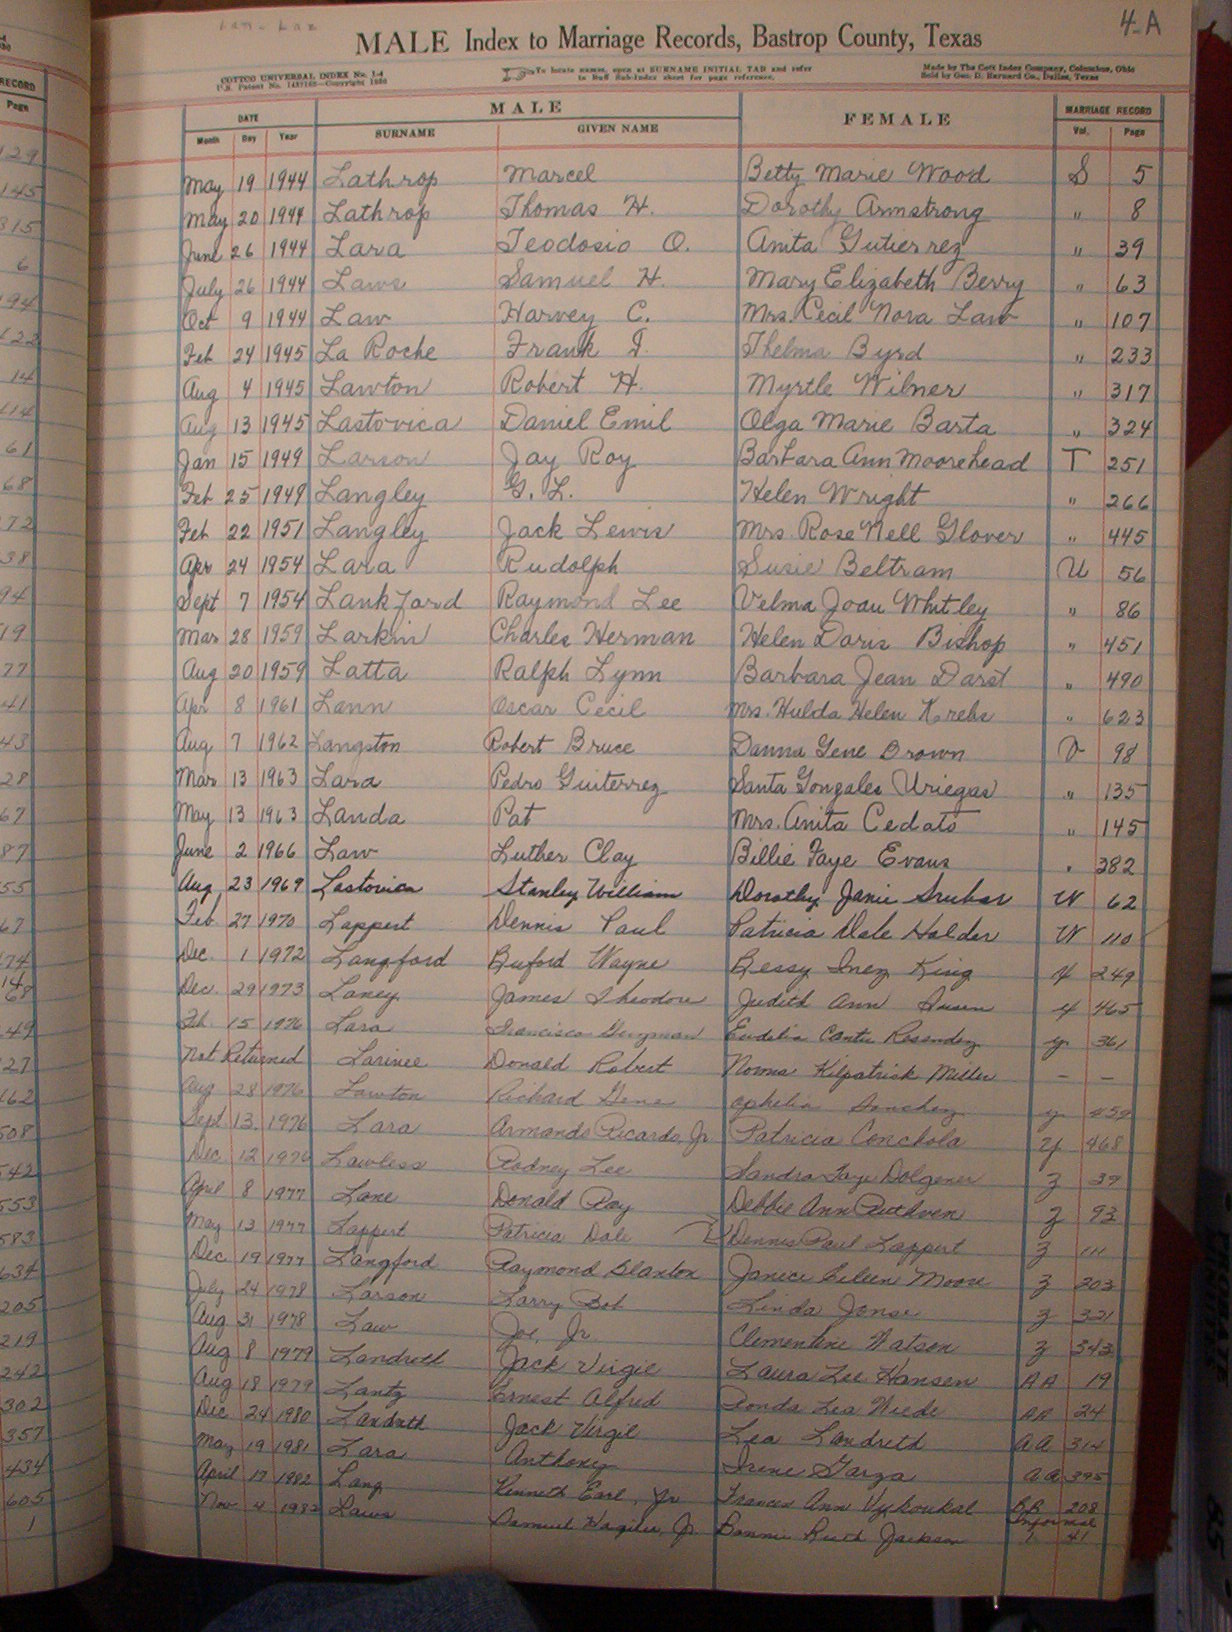 Lan - Laz
4-A
MALE Index to Marriage Records, Bastrop County, Texas
COTTCO UNIVERSAL INDEX No. 1-4
U.S. Patent No. Copyright 1930
To locate names, open at SURNAME INITIAL TAB and refer
to Buff Sub-Index sheet for page reference.
Made by The Cott Index Company, Columbus, Ohio
Sold by Geo. D. Barnard Co., Dallas, Texas
DATE MALE FEMALE MARRIAGE RECORD
Month Day Year SURNAME GIVEN NAME Vol. Page
May 19 1944 Lathrop Marcel Betty Marie Wood S 5
May 20 1944 Lathrop Thomas H. Dorothy Armstrong " 8
June 26 1944 Lara Teodosio O. Anita Gutierrez " 39
July 26 1944 Laws Samuel H. Mary Elizabeth Berry " 63
Oct 9 1944 Law Harvey C. Mrs. Cecil Nora Law " 107
Feb 24 1945 La Roche Frank Thelma Byrd " 233
Aug 4 1945 Lawton Robert H. Myrtle Wilner " 317
Aug 13 1945 Lastovica Daniel Emil Olga Marie Barta " 324
Jan 15 1949 Larson Jay Roy Barbara Ann Moorehead T 251
Feb 25 1949 Langley G. L. Helen Wright " 266
Feb 22 1951 Langley Jack Lewis Mrs. Rose Nell Glover " 445
Apr 24 1954 Lara Rudolph Susie Beltram U 56
Sept 7 1954 Lankford Raymond Lee Velma Joan Whitley " 86
Mar 28 1959 Larkin Charles Herman Helen Doris Bishop " 451
Aug 20 1959 Latta Ralph Lynn Barbara Jean Darst " 490
Apr 8 1961 Lann Oscar Cecil Mrs. Hulda Helen Krebs " 623
Aug 7 1962 Langston Robert Bruce Danna Gene Brown V 98
Mar 13 1963 Lara Pedro Guiterrez Santa Gonzales Uriegas " 135
May 13 1963 Landa Pat Mrs. Anita Cedats " 145
June 2 1966 Law Luther Clay Billie Faye Evans " 382
Aug 23 1969 Lastovica Stanley William Dorothy Janie Srubar W 62
Feb 27 1970 Lappert Dennis Paul Patricia Dale Holder W 110
Dec. 1 1972 Langford Buford Wayne Bessy Inez King 249
Dec. 29 1973 Laney James Theodore Judith Ann 465
Feb. 15 1976 Lara Francisco Guzman Eudelia Cantu Resendez y 361
Not Returned Larinee Donald Robert Norma Kilpatrick Miller - -
Aug 28 1976 Lawton Richard Gene Ophelia Sanchez y
Sept 13 1976 Lara Armando Ricardo, Jr Patricia Conchola y 468
Dec 12 1976 Lawless Rodney Lee Sandra Faye Dolgener z 37
April 8 1977 Lane Donald Ray Debbie Ann Ruthven z 93
May 13 1977 Lappert Patricia Dale Dennis Paul Lappert z 111
Dec 19 1977 Langford Raymond Blanton Janice Eileen Moore z 203
July 24 1978 Larson Larry Bob Linda z 321
Aug 31 1978 Law Joe, Jr Clementine Watson z 343
Aug 8 1979 Landreth Jack Virgil Laura Lee Hansen AA 19
Aug 18 1979 Lantz Ernest Alfred Ronda Lea Wiede AA 24
Dec 24 1980 Landreth Jack Virgil Lea Landreth AA 314
May 19 1981 Lara Anthony Irene Garza AA 395
April 17 1982 Lang Kenneth Earl, Jr Frances Ann Vychoukal BB 208
Nov 4 1982 Laws Samuel Jr Bonnie Ruth Jackson Informal 1 41